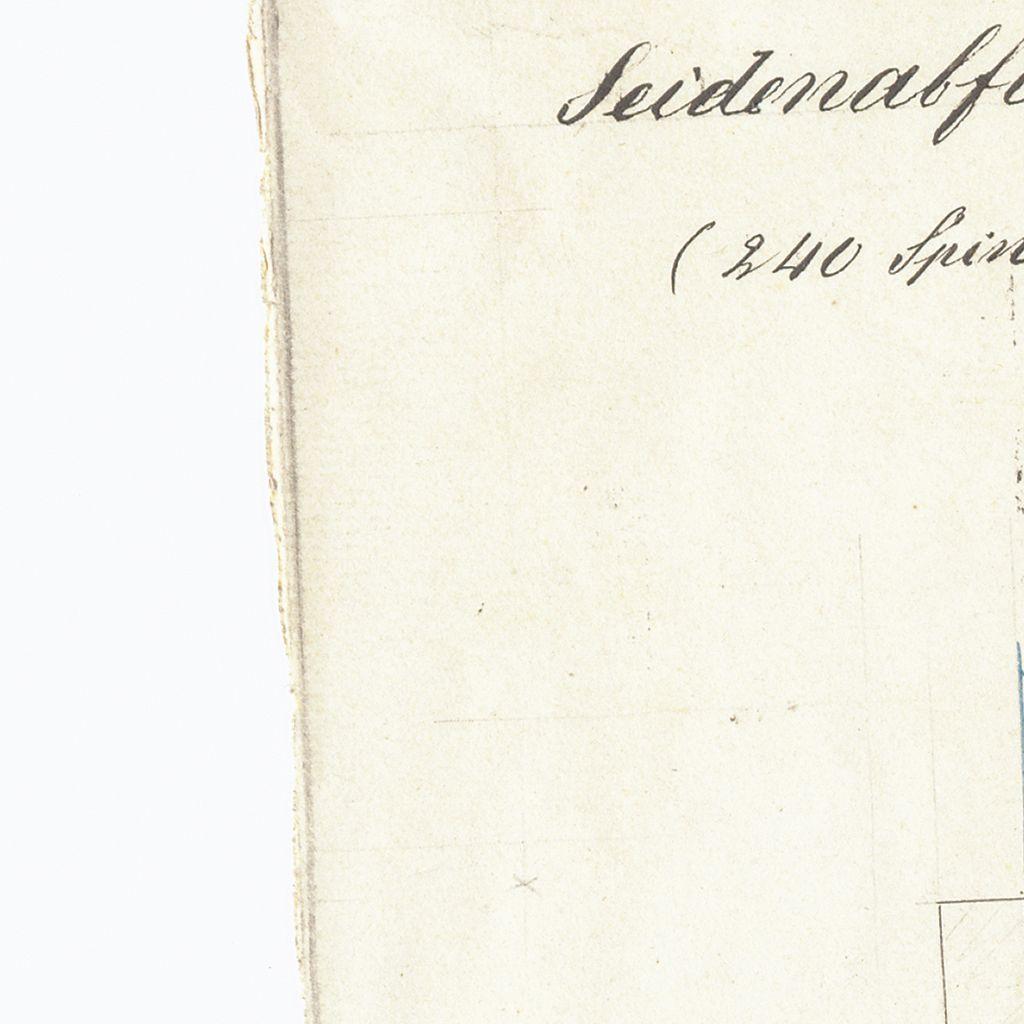 Seidenabf
( 240 Spin